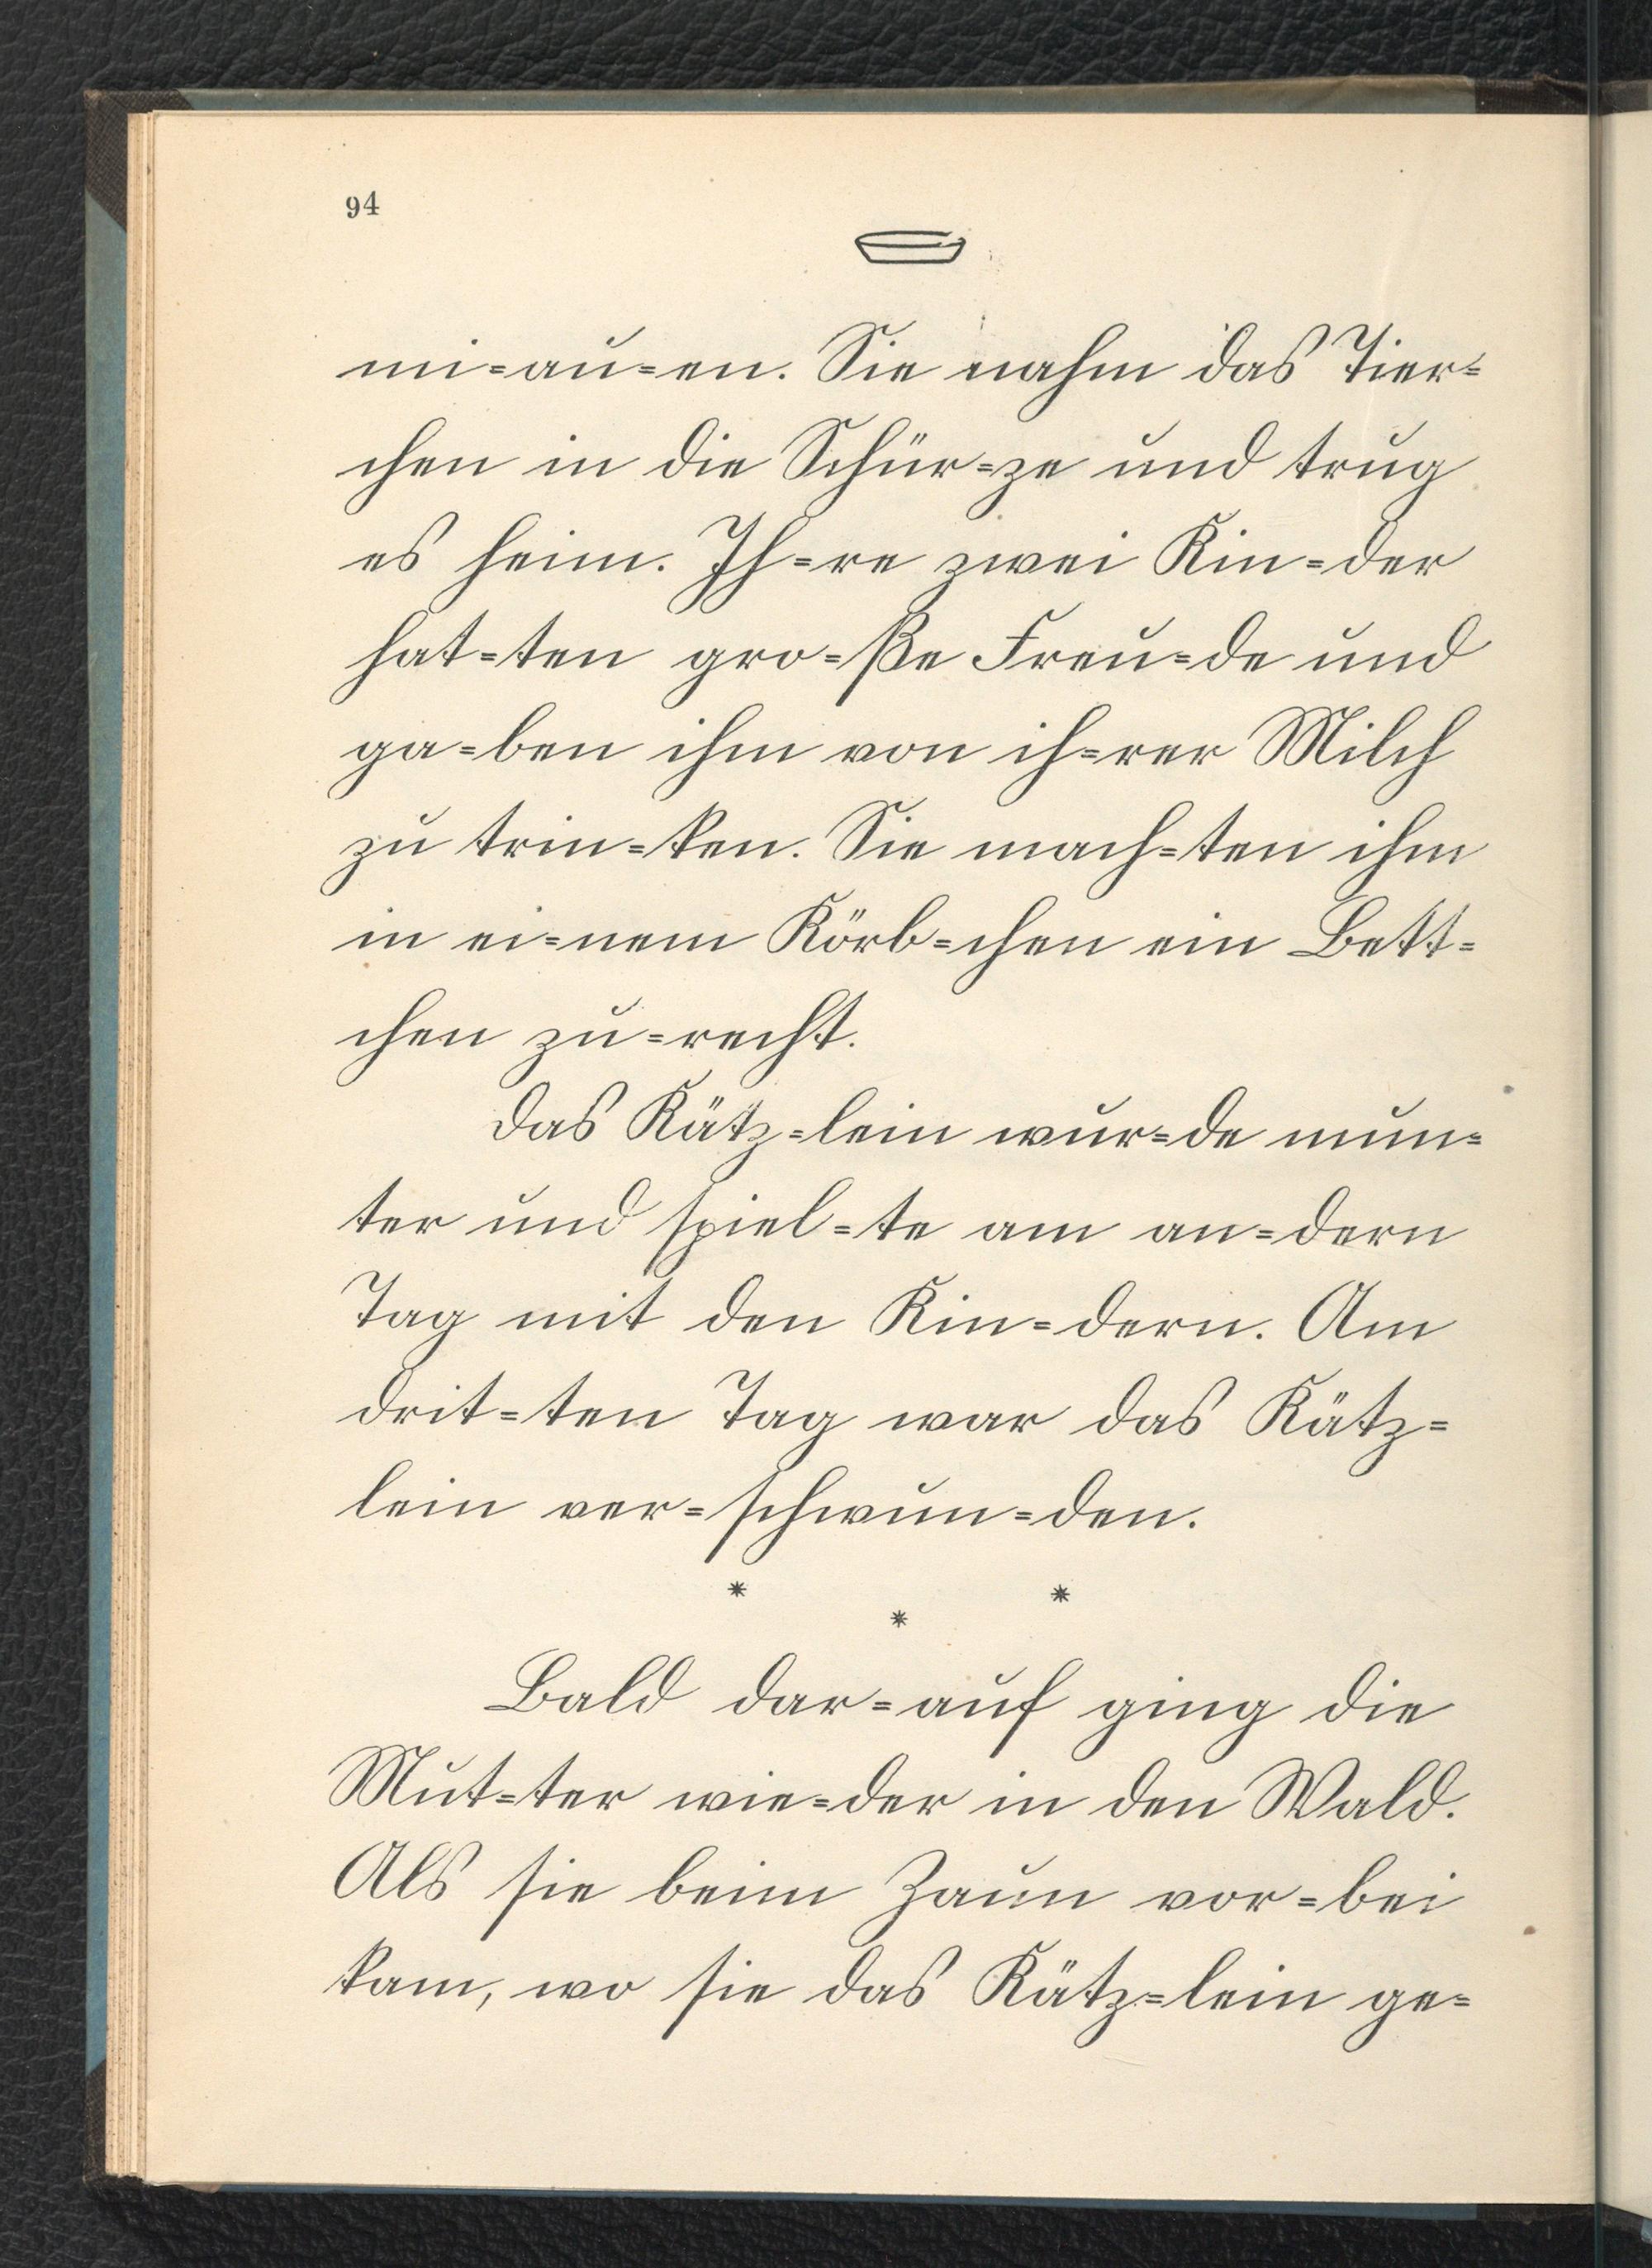 94
mi-au-en. Sie nahm das Tier-
chen in die Schür-ze und trug
es heim. Ih-re zwei Kin-der
hat-ten gro-ße Freu-de und
ga-ben ihm von ih-rer Milch
zu trin-ken. Sie mach-ten ihm
in ei-nem Körb-chen ein Bett-
chen zu-recht.
Das Kätz-lein wur-de mun-
ter und spiel-te am an-dern
Tag mit den Kin-dern. Am
drit-ten Tag war das Kätz-
lein ver-schwun-den.
* * *
Bald dar-auf ging die
Mut-ter wie-der in den Wald.
Als sie beim Zaun vor-bei
kam, wo sie das Kätz-lein ge-